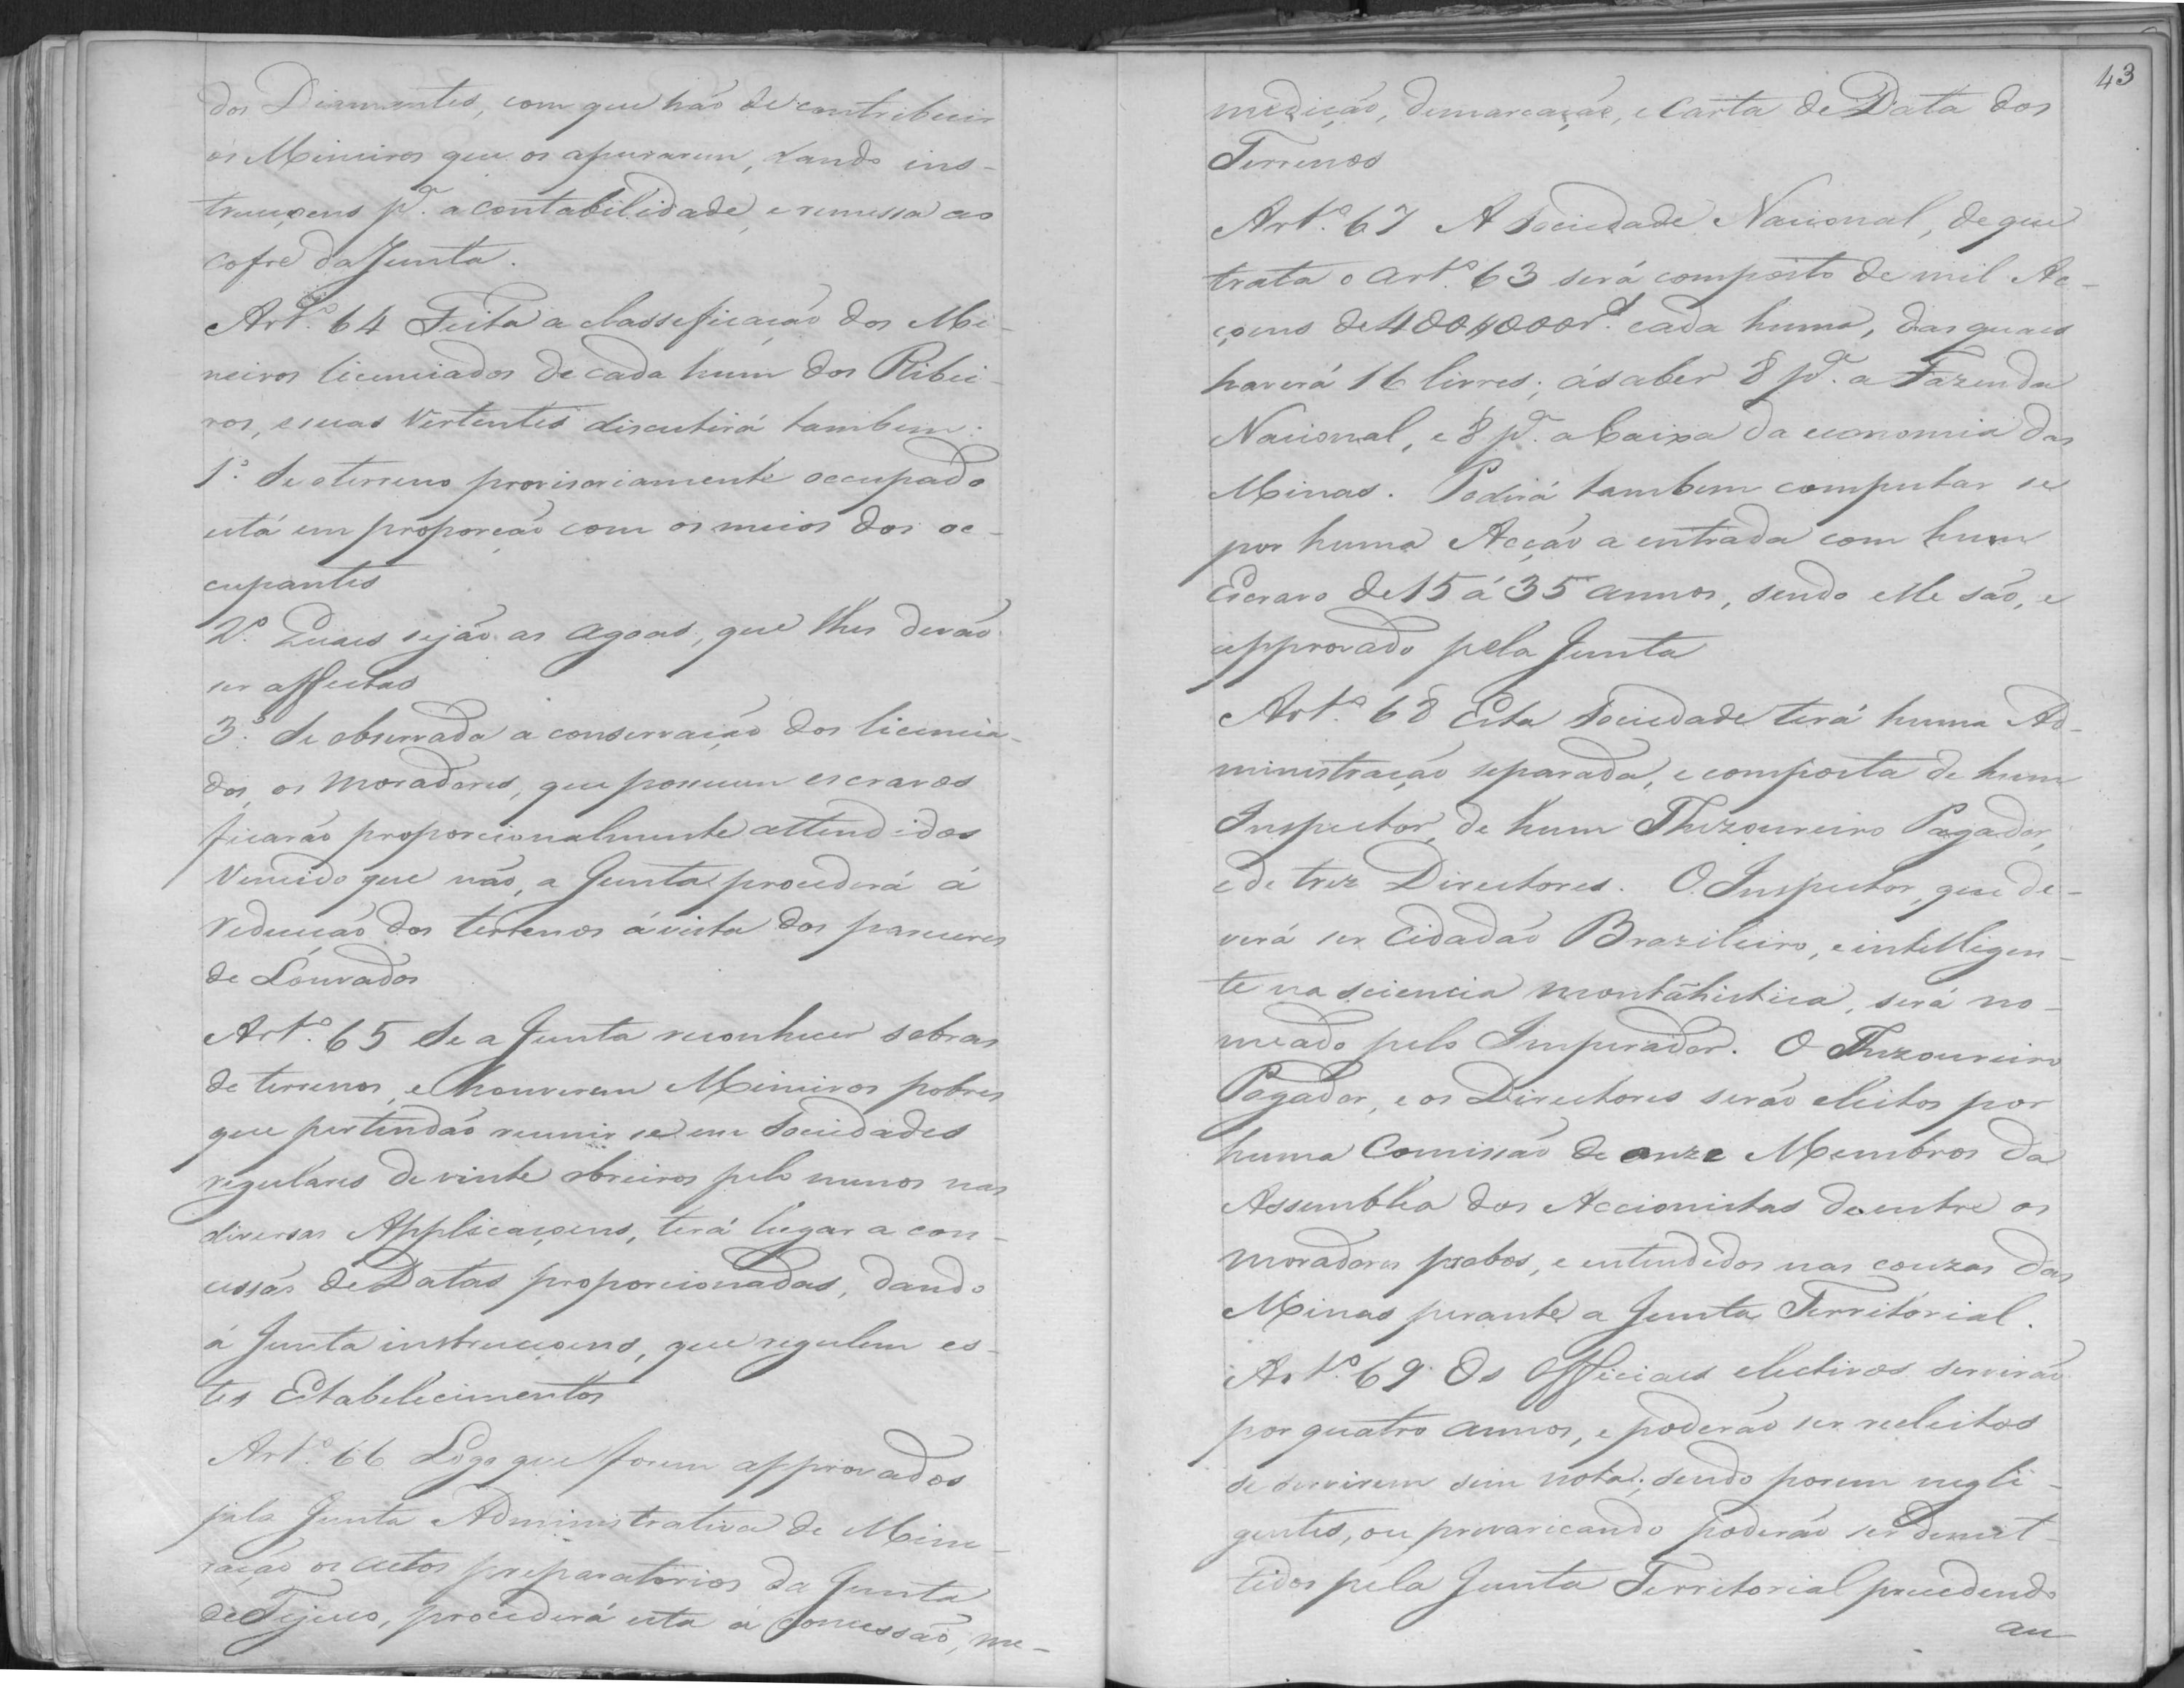 dos Diamantes, com que hão de contribuir
os Mineiros que os apurarem, dando ins-
trucçoens p.ª a contabilidade, e remessa ao
cofre da Junta.
Art.º 64 Feita a classeficação dos Mi-
neiros licenciados de cada hum dos Ribei-
ros, e suas Vertentes discutirá tambem:
1.º Se o terreno provisoriamente occupado
está em proporção com os meios dos oc-
cupantes
2.º Quaes sejão as agoas, que lhes devão
ser affectas
3.º Se observada a conservação dos licencia-
dos, os moradores, que possuem escravos
ficarão proporcionalmente attendidos
Vencido que não, a Junta procederá á
reducção dos terrenos á vista dos pareceres
de Louvados
Art.º 65 Se a Junta reconhecer sobras
de terrenos, e houverem Mineiros pobres
que pertendão reunir se em Sociedades
regulares de vinte obreiros pelo menos nas
diversas Applicaçoens, terá lugar a con-
cessão de Datas proporcionadas, dando
á Junta instrucçoens, que regulem es-
tes Estabelecimentos
Art.º 66 Logo que forem approvados
pela Junta Administrativa de Mine-
ração os actos preparatorios da Junta
de Tejuco, procederá esta á Concessão, me-
43
medição, demarcação, e Carta de Data dos
Terrenos
Art.º 67 A Sociedade Nacional, de que
trata o art.º 63 será composto de mil Ac-
çoens de 400$000r.s cada huma, das quaes
haverá 16 livres; á saber 8 p.ª a Fazenda
Nacional, e 8 p.ª a Caixa da economia das
Minas. Poderá tambem computar se
por huma Acção a entrada com hum
Escravo de 15 á 35 annos, sendo elle são, e
approvado pela Junta
Art.º 68 Esta Sociedade terá huma Ad-
ministração separada, e composta de hum
Inspector, de hum Thezoureiro Pagador,
e de trez Directores. O Inspector, que de-
verá ser Cidadão Brazileiro, e intelligen-
te na sciencia montãhistica, será no-
meado pelo Imperador. O Thezoureiro
Pagador, e os Directores serão eleitos por
huma Comissão de onze Membros da
Assemblea dos Accionistas de entre os
moradores probos, e entendidos nas couzas das
Minas perante a Junta Territorial.
Art.º 69. Os Officiaes electivos servirão
por quatro annos, e poderão ser reeleitos
se servirem sem nota; sendo porem negli-
gentes, ou prevaricando poderão ser demit-
tidos pela Junta Territorial precedendo
au